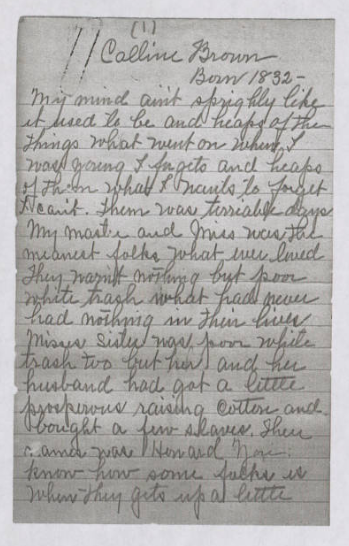 (1)
Calline Brown
Born 1832-
My mind ain't sprighly like
it used to be and heaps of the
things what went on when I
was young I forgets and heaps
of them what I wants to forget
I can't. Them was terriable days
My master and Miss was the
meanest folks what ever lived
They warn't nothing but poor
white trash what had never
had nothing in their lives
Misses sister was poor white
trash too but her and her
husband had got a little
prosperous raising cotton and
bought a few slaves. Their
names was Howard You
know how some folks is
when they gets up a little